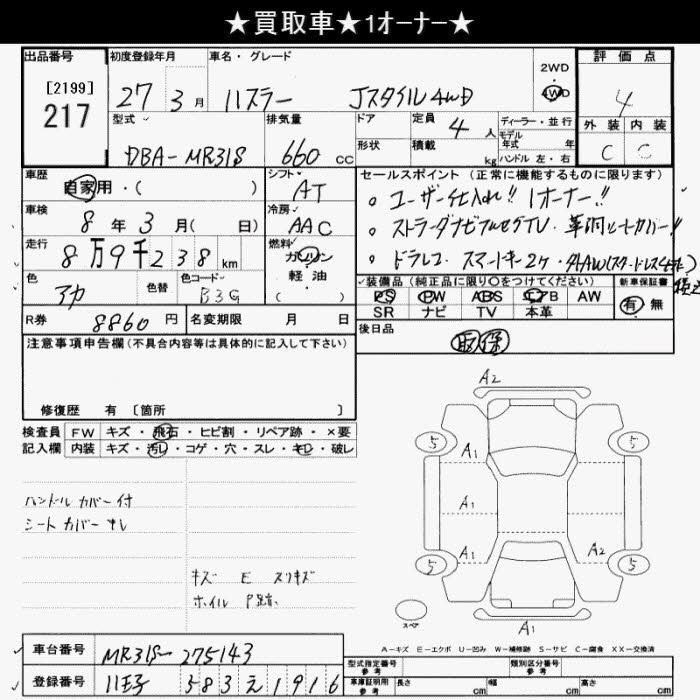 ★買取車★1オーナー★
出品番号 初度登録年月 車名・グレード 2WD 評価点
[2199] 217 27年 3月 ハスラー Jスタイル4WD 4WD 4
型式 排気量 ドア 定員 4人 ディーラー・並行 外装 内装
モデル年式 年
DBA-MR31S 660cc 形状 積載 kg ハンドル 左・右 C C
車歴 シフト セールスポイント(正常に機能するものに限ります)
自家用・( ) AT ○ユーザー仕入れ!! 1オーナー!!
車検 冷房 ○ストラーダナビフルセグTV・革調シートカバー!!
8年 3月( 日) AAC
走行 燃料 ○ドラレコ スマートキー2ケ・外AW(スタッドレス
8万9千238km ガソリン
軽油
( )
色 色替 色コード 装備品(純正品に限り○をつけてください) 新車保証書
アカ B3G PS PW ABS エアB AW 有 無
SR ナビ TV 本革
R券 8860円 名変期限 月 日 後日品
注意事項申告欄(不具合内容等は具体的に記入して下さい) 取 保
修復歴 有 [箇所 ]
検査員 FW キズ・飛石・ヒビ割・リペア跡・×要
記入欄 内装 キズ・汚レ・コゲ・穴・スレ・キレ・破レ
A2
5 5
A1
A1
A1 A2
5 5
ハンドルカバー付
シートカバーキレ
キズ E スリキズ
ホイル P跡
スペア
A1
A-キズ E-エクボ U-凹み W-補修跡 S-サビ C-腐食 XX-交換済
車台番号 MR31S-275143
登録番号 八王子 583 え 1916
型式指定番号 参考 類別区分番号 参考
車庫証明用 参考 長さ cm 幅 cm 高さ cm